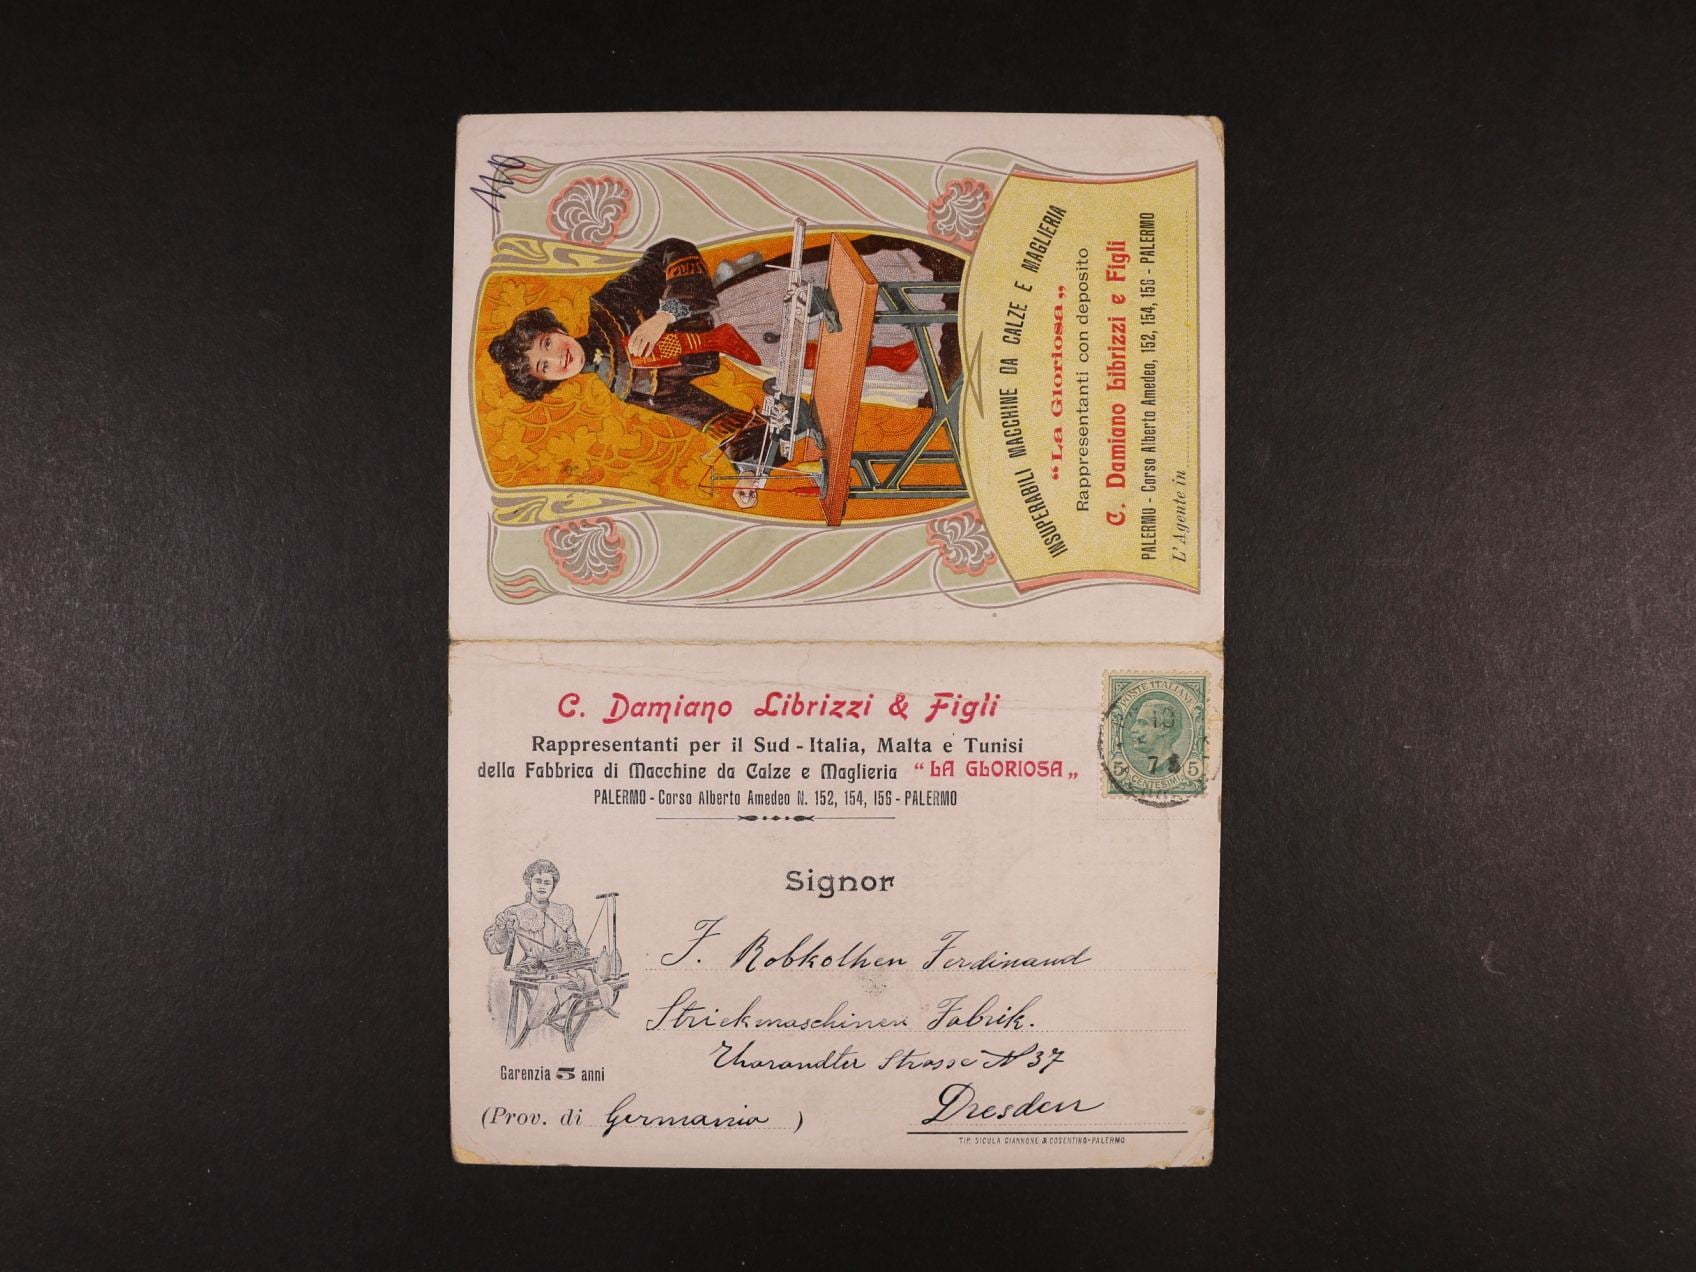 INSUPERABILI MACCHINE DA CALZE E MAGLIERIA
“La Gloriosa„
Rappresentanti con deposito
C. Damiano Librizzi e Figli
PALERMO - Corso Alberto Amedeo, 152, 154, 156 - PALERMO
L'Agente in
C. Damiano Librizzi & Figli
Rappresentanti per il Sud-Italia, Malta e Tunisi
della Fabbrica di Macchine da Calze e Maglieria “LA GLORIOSA„
PALERMO - Corso Alberto Amedeo N. 152, 154, 156 - PALERMO
POSTE ITALIANE
5 CENTESIMI 5
Signor
F. Robkothen Ferdinand
Strickmaschinen Fabrik.
Tharandter Strasse N 37
Dresden
Garenzia 5 anni
(Prov. di Germania)
TIP. SICULA GIANNONE & COSENTINO-PALERMO